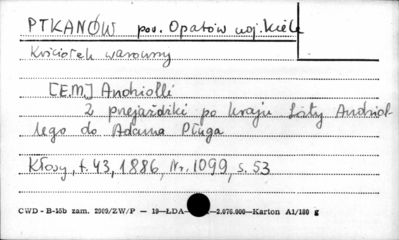 PTKANÓW pow. Opatów woj. Kiele
Kościołek warowny
[E.M.] Andriolli
Z przejażdżki po kraju Listy Andriol-
lego do Adama Pługa
Kłosy, t. 43, 1886, Nr. 1099, s. 53
CWD - B-15b zam. 2909/ZW/P — 19—LDA— —2.076.000—Karton A1/180 g